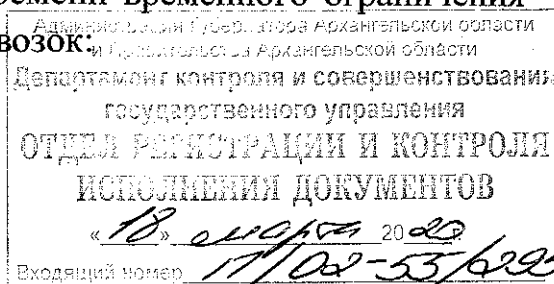 ремени временного ограничения
возок.
Администрация Губернатора Архангельской области
и Правительства Архангельской области
Департамент контроля и совершенствования
государственного управления
ОТДЕЛ РЕГИСТРАЦИИ И КОНТРОЛЯ
ИСПОЛНЕНИЯ ДОКУМЕНТОВ
«18» марта 2020
Входящий номер 17/02-55/293